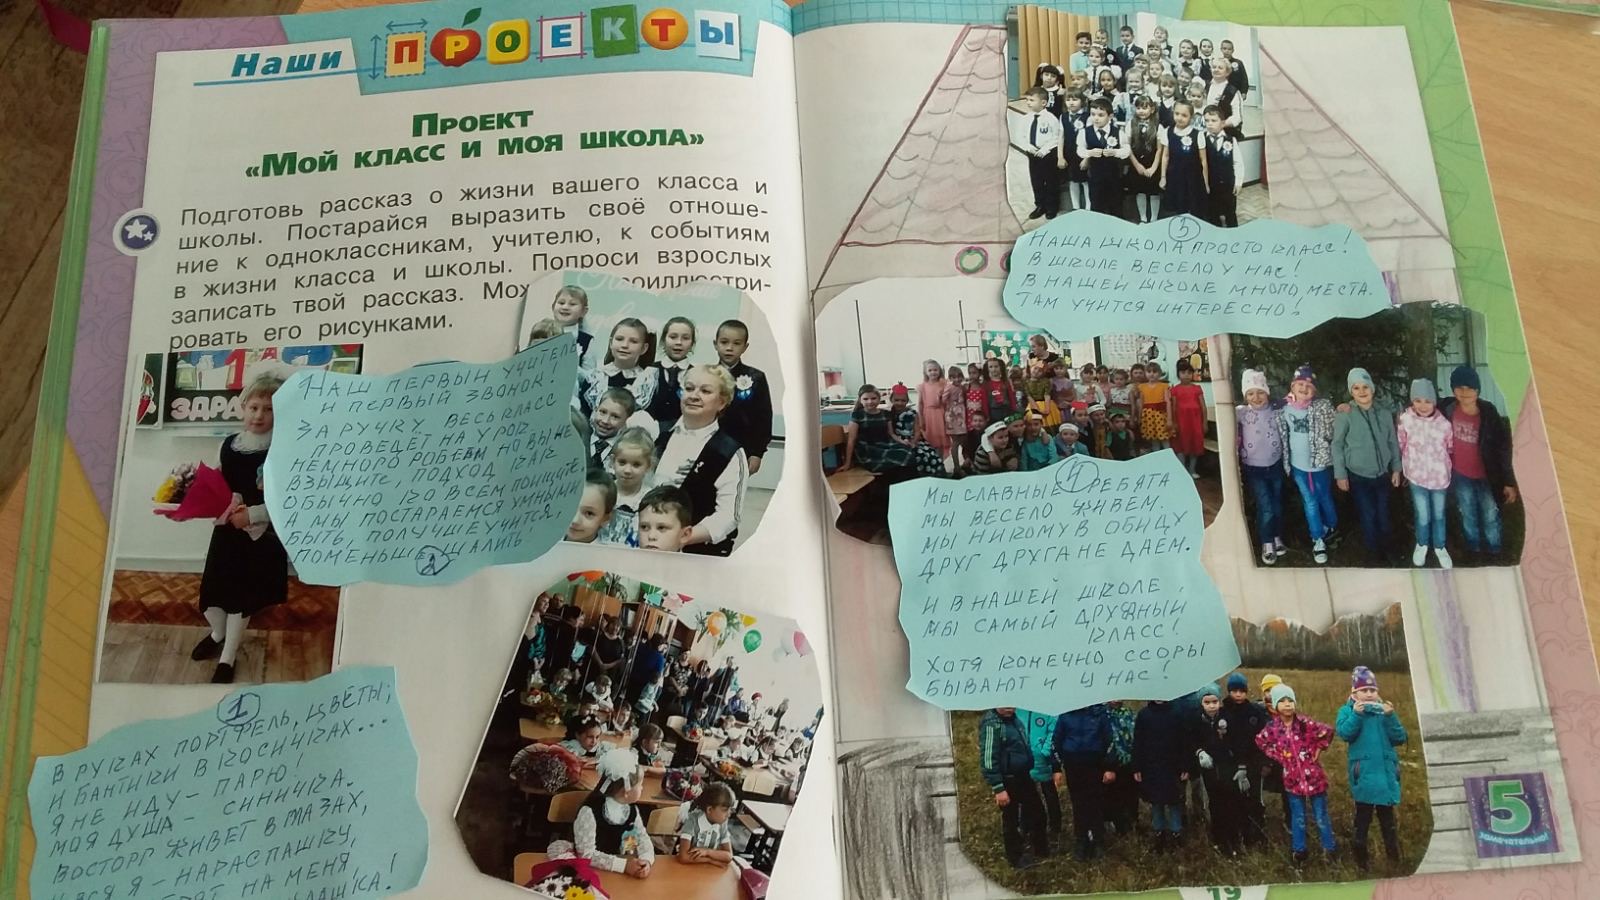 Наши ПРОЕКТЫ
ПРОЕКТ
«МОЙ КЛАСС И МОЯ ШКОЛА»
Подготовь рассказ о жизни вашего класса и
школы. Постарайся выразить своё отноше-
ние к одноклассникам, учителю, к событиям
в жизни класса и школы. Попроси взрослых
записать твой рассказ. Мож роиллюстри-
ровать его рисунками.
ЗДРА
НАШ ПЕРВЫЙ УЧИТЕЛЬ
И ПЕРВЫЙ ЗВОНОК!
ЗА РУЧКУ ВЕСЬ КЛАСС
ПРОВЕДЕТ НА УРОК
НЕМНОГО РОБЕЕМ НО ВЫ НЕ
ВЗЫЩИТЕ, ПОДХОД КАК
ОБЫЧНО КО ВСЕМ ПОИЩИТЕ.
А МЫ ПОСТАРАЕМСЯ УМНЫМИ
БЫТЬ, ПОЛУЧШЕ УЧИТСЯ,
ПОМЕНЬШЕ ШАЛИТЬ
2
1
В РУКАХ ПОРТФЕЛЬ, ЦВЕТЫ,
И БАНТИКИ В КОСИЧКАХ...
Я НЕ ИДУ - ПАРЮ!
МОЯ ДУША - СИНИЧКА.
ВОСТОРГ ЖИВЕТ В ГЛАЗАХ,
Я - НАРАСПАШКУ,
НА МЕНЯ,
5
НАША ШКОЛА ПРОСТО КЛАСС!
В ШКОЛЕ ВЕСЕЛО У НАС!
В НАШЕЙ ШКОЛЕ МНОГО МЕСТА.
ТАМ УЧИТСЯ ИНТЕРЕСНО!
4
МЫ СЛАВНЫЕ РЕБЯТА
МЫ ВЕСЕЛО ЖИВЕМ.
МЫ НИКОМУ В ОБИДУ
ДРУГ ДРУГА НЕ ДАЕМ.
И В НАШЕЙ ШКОЛЕ,
МЫ САМЫЙ ДРУЖНЫЙ
КЛАСС!
ХОТЯ КОНЕЧНО ССОРЫ
БЫВАЮТ И У НАС!
5
замечательно!
19